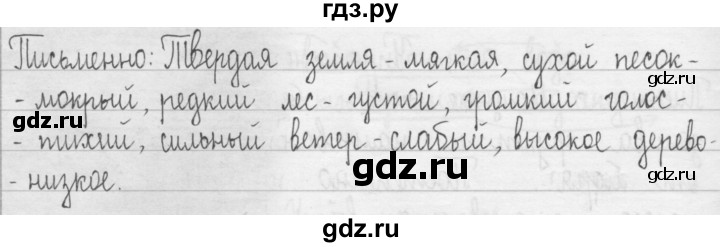 гдз.ру
Письменно: Твердая земля - мягкая, сухой песок -
- мокрый, редкий лес - густой, громкий голос -
- тихий, сильный ветер - слабый, высокое дерево -
- низкое.
gdz.ru
gdz.ru
gdz.ru
gdz.ru